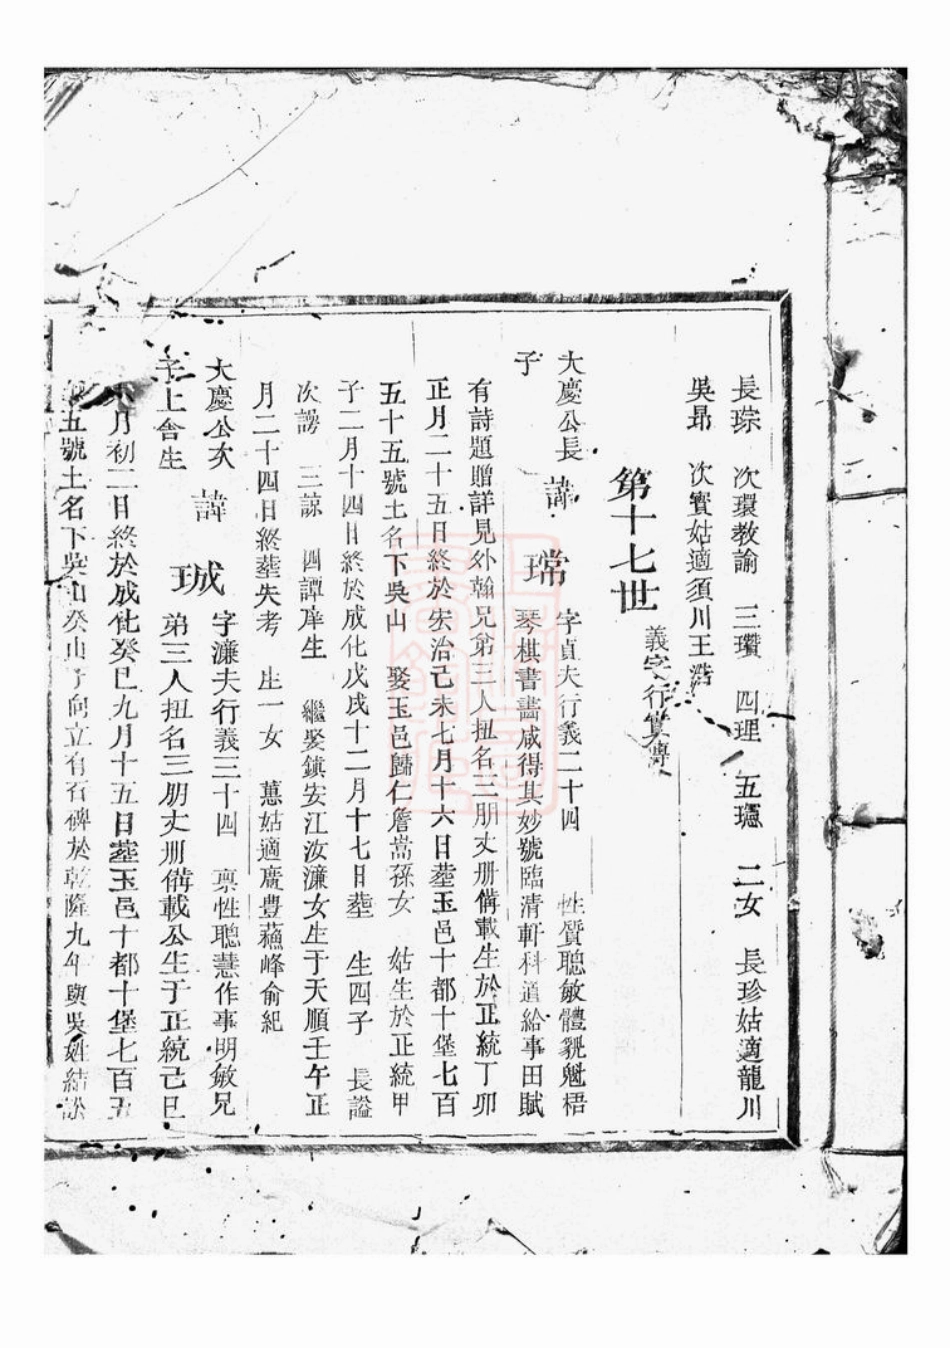 長琮 次環教諭 三瓚 四理 五璁 二女 長珍姑適龍川
吳昻 次寳姑適須川王浩
第十七世 義字行實傳
大慶公長
子
諱
瑺
字貞夫行義二十四 性質聰敏體貌魁梧
琴棋書畵咸得其妙號臨清軒科道給事田賦
有詩題贈詳見外翰兄弟三人扭名三朋丈册俻載生於正統丁卯
正月二十五日終於宏治己未七月十六日塟玉邑十都十堡七百
五十五號土名下吳山 娶玉邑歸仁詹嵩孫女 姑生於正統甲
子二月十四日終於成化戊戌十二月十七日塟 生四子 長謚
次謗 三諒 四譚庠生 繼娶鎮安江汝濂女生于天順壬午正
月二十四日終塟失考 生一女 蕙姑適廣豊蘓峰俞紀
大慶公次
子上舍生
諱
珹
字濂夫行義三十四 禀性聰慧作事明敏兄
弟三人扭名三朋丈册俻載公生于正統己巳
月初二日終於成化癸巳九月十五日塟玉邑十都十堡七百五
五號土名下吳山癸山丁向立有石碑於乾隆九年與吳姓結訟